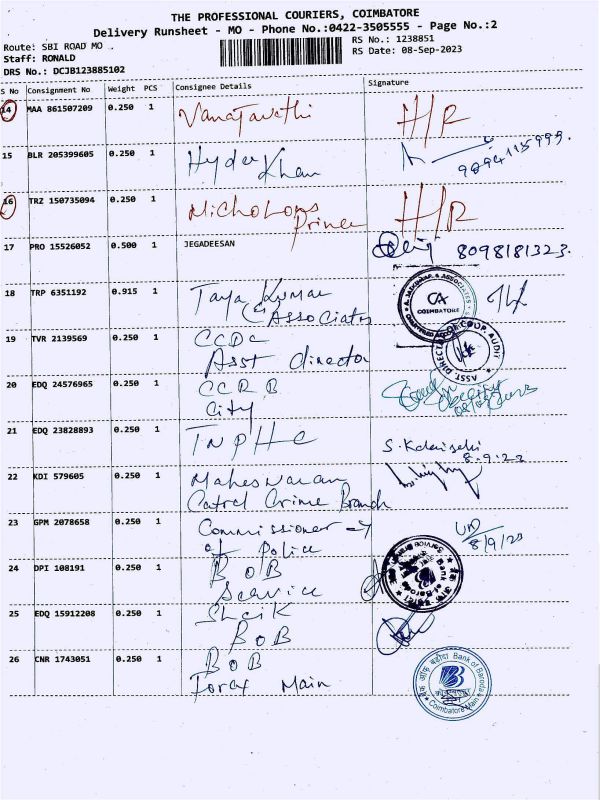 THE PROFESSIONAL COURIERS, COIMBATORE
Delivery Runsheet - MO - Phone No.:0422-3505555 - Page No.:2
Route: SBI ROAD MO .
RS No.: 1238851
Staff: RONALD
RS Date: 08-Sep-2023
DRS No.: DCJB123885102
S No Consignment No Weight PCS Consignee Details Signature
14 MAA 861507209 0.250 1 Vanajavathi H/R
15 BLR 205399605 0.250 1 Hyder Khan
16 TRZ 150735094 0.250 1 Micholops Prince H/R
17 PRO 15526052 0.500 1 JEGADEESAN 8098181323.
18 TRP 6351192 0.915 1 Jaya Kumar
Associates
CA COIMBATORE
19 TVR 2139569 0.250 1 CCDC
Asst director
ASST DIRECTOR OF COOP. AUDIT
20 EDQ 24576965 0.250 1 CCRB
City
21 EDQ 23828893 0.250 1 TNPHC
8.9.23
22 KDI 579605 0.250 1 Maheswaran
Catrel Crime Branch
23 GPM 2078658 0.250 1 Commissioner
of Police
8/9/23
24 DPI 108191 0.250 1 BOB
Service
Bank of Baroda
25 EDQ 15912208 0.250 1 Sheik
BOB
26 CNR 1743051 0.250 1 BOB
Forex Main
बैंक ऑफ़ बड़ौदा Bank of Baroda
Coimbatore Main